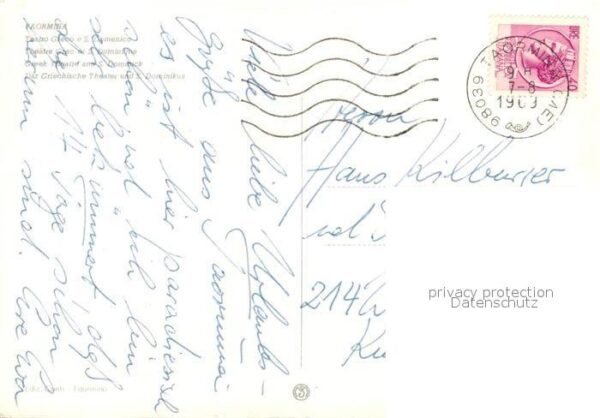 TAORMINA
Teatro Greco e S. Domenico
Théâtre Grec et S. Dominique
Greek Theatre and S. Dominick
Das Griechische Theater und S. Dominikus
Viele liebe Urlaubs-
Grüße aus Taormina
es ist hier paradiesisch
schön und ich bin
sehr bekümmert, daß
die 14 Tage schon
herum sind. Eure Eva
98039 TAORMINA (ME)
9 H
7-8
1969
Herrn
Hans Kilburger
und
214
privacy protection
Datenschutz